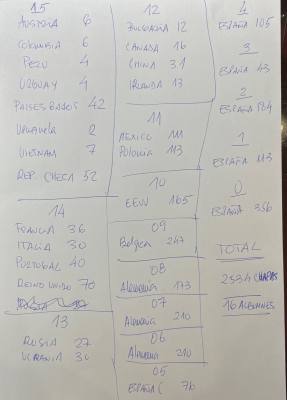 15
AUSTRIA 6
COLOMBIA 6
PERU 4
URUGUAY 4
PAISES BAJOS 42
VENEZUELA 2
VIETNAM 7
REP. CHECA 52
14
FRANCIA 36
ITALIA 30
PORTUGAL 40
REINO UNIDO 70
13
RUSIA 27
UCRANIA 30
12
BULGARIA 12
CANADA 16
CHINA 31
IRLANDA 13
11
MEXICO 111
POLONIA 113
10
EEUU 165
09
Belgica 247
08
Alemania 173
07
Alemania 210
06
Alemania 210
05
ESPAÑA ( 76
4
ESPAÑA 105
3
ESPAÑA 43
2
ESPAÑA 184
1
ESPAÑA 113
0
ESPAÑA 356
TOTAL
2534 CHAPAS
16 ALBUMNES